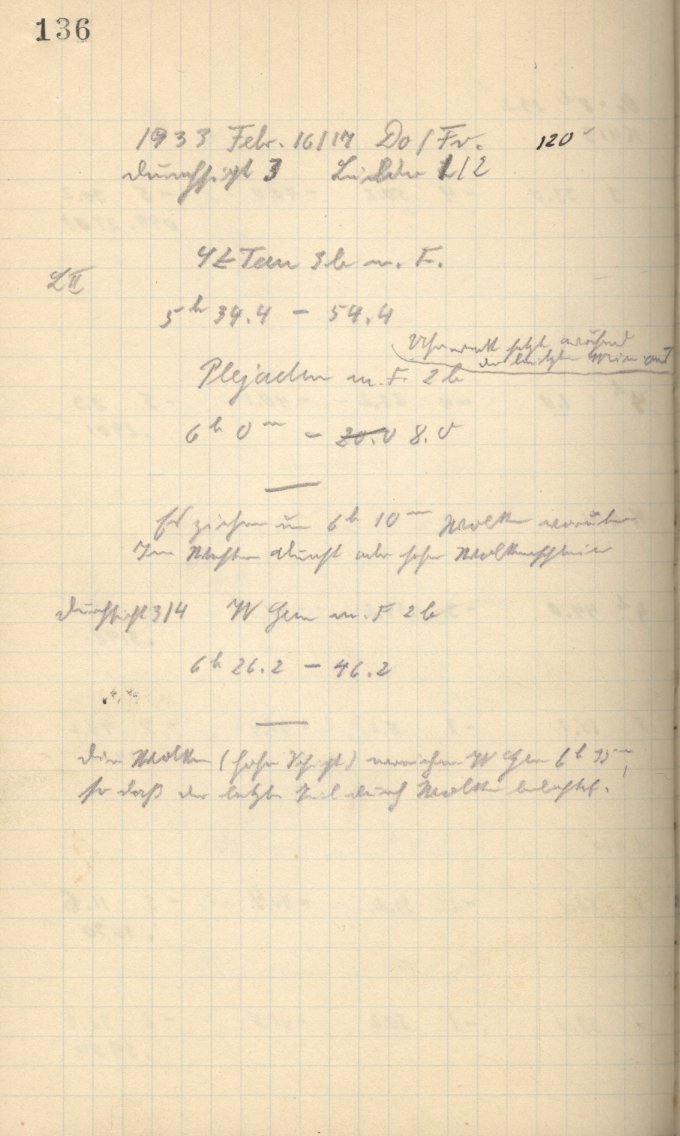 136
1933 Febr. 16/17 Do/Fr. 120
Durchsicht 3 Luft 1/2
Tau 3b m. F.
L II
5h 34.4 – 54.4
Uhr setzt während
der letzten Min. aus
Plejaden m. F. 2b
6h 0m – 20.0 8.0
Es ziehen um 6h 10m Wolken vorüber
Im Westen Dunst oder hohe Wolkenschleier
Durchsicht 3/4 W Gem m. F 2b
6h 26.2 – 46.2
Die Wolken (hohe Schicht) erreichen W Gem 6h 35m,
so daß der letzte Teil durch Wolken belichtet.